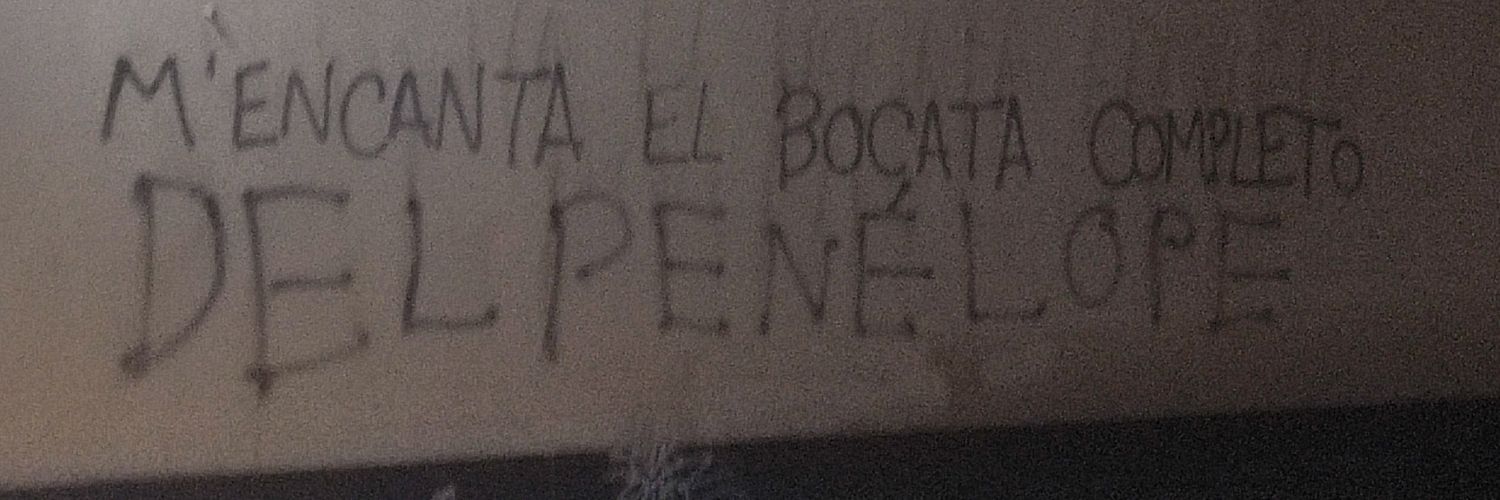 M'ENCANTA EL BOCATA COMPLETO
DEL PENÉLOPE